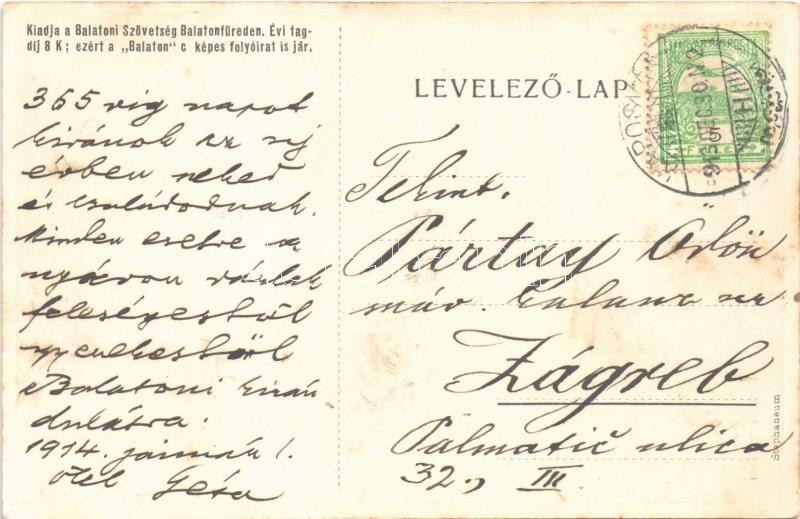 Kiadja a Balatoni Szövetség Balatonfüreden. Évi tag-
díj 8 K; ezért a „Balaton" c képes folyóirat is jár.
LEVELEZŐ-LAP
365 víg napot
kivánok az uj
évben neked
és családodnak.
Minden esetre a
nyáron várlak
feleségestöl
gyerekestöl
Balatoni kirán
dulásra.
1914. január 1.
ölel Géza
Tekint.
Pártay Ödön
máv. úr
Zágreb
Palmatić ulica
32., III
Stephaneum